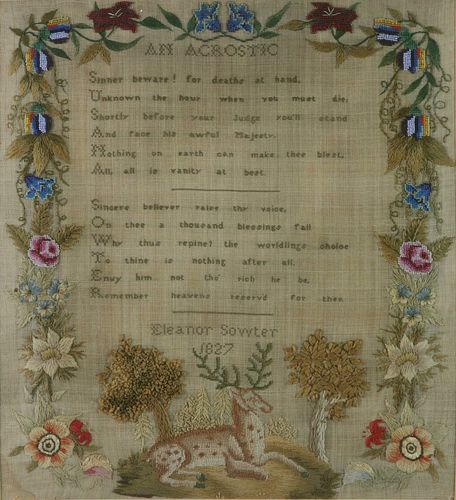 AN ACROSTIC
Sinner beware! for deaths at hand,
Unknown the hour when you must die,
Shortly before your Judge you'll stand
And face his awful Majesty.
Nothing on earth can make thee blest,
All, all is vanity at best.
Sincere believer raise thy voice,
On thee a thousand blessings fall
Why thus repine? the worldlings choice
To thee is nothing after all.
Envy him not tho' rich he be,
Remember heavens reserv'd for thee.
Eleanor Sowter
1827